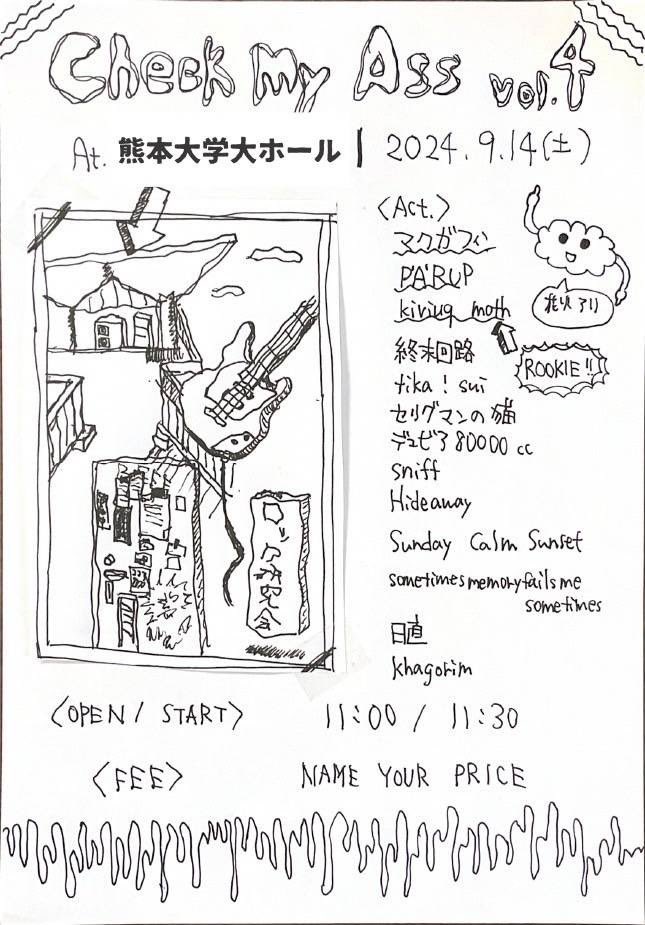 Check My Ass vol.4
At. 熊本大学大ホール | 2024.9.14(土)
<Act.>
マクガフィン
PABUP
kiviuq moth
終末回路
tika ! sui
セリグマンの猫
デュビア80000cc
sniff
Hideaway
Sunday Calm Sunset
sometimesmemoryfailsme
sometimes
日直
khagorim
ROOKIE!!
ロック研究会
<OPEN / START> 11:00 / 11:30
<FEE> NAME YOUR PRICE